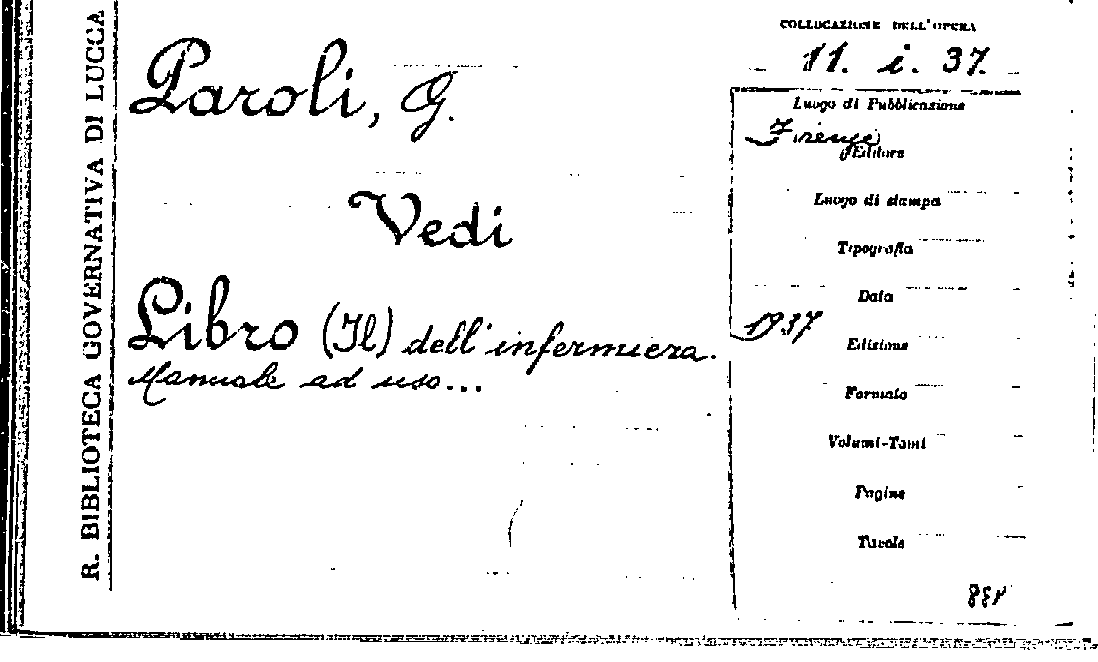 R. BIBLIOTECA GOVERNATIVA DI LUCCA
Paroli, G.
Vedi
Libro (Il) dell'infermiera.
Manuale ad uso...
COLLOCAZIONE DELL'OPERA
11. i. 37.
Luogo di Pubblicazione
Firenze
Editore
Luogo di stampa
Tipografia
Data
1937
Edizione
Formato
Volumi-Tomi
Pagine
Tavole